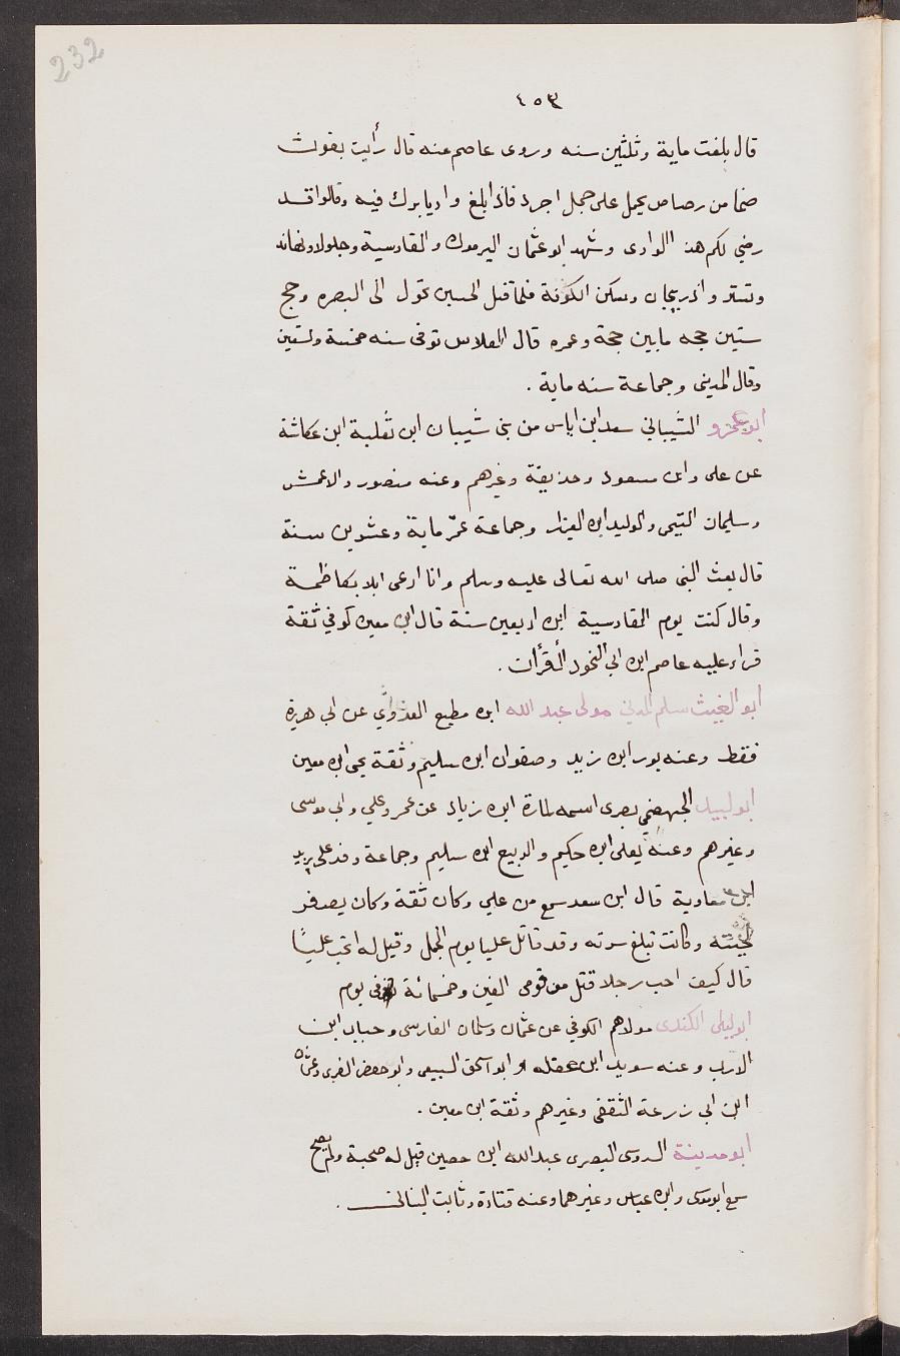 232
٤٥٣
قال بلغت ماية وثلثين سنه وروى عاصم عنه قال رأيت يغوث
صنما من رصاص يحمل على جمل اجرد فاذا بلغ واديا برك فيه وقالوا قد
رضي لكم هذا الوادى وشهد ابو عثمان اليرموك والقادسية وجلولا ونهاند
وتستر واذربيجان وسكن الكوفة فلما قتل الحسين تحول الى البصره وحج
ستين حجه مابين حجة وعمره قال الفلاس توفى سنه خمسة وتسعين
وقال المدينى وجماعة سنه ماية .
ابو عمرو الشيباني سعد ابن اياس من بنى شيبان ابن ثعلبة ابن عكاشة
عن على وابن مسعود وحذيفة وغيرهم وعنه منصور والاعمش
وسليمان التيمى والوليد ابن العيزار وجماعة عمّر ماية وعشرين سنة
قال بعث النبى صلى الله تعالى عليه وسلم وانا ارعى ابلا بكاظمة
وقال كنت يوم القادسية ابن اربعين سنة قال ابن معين كوفي ثقة
قراء عليه عاصم ابن ابي النجود القرأن .
ابو الغيث سلم المدني مولى عبد الله ابن مطيع العدوّاي عن ابي هريرة
فقط وعنه ثور ابن زيد وصفوان ابن سليم وثقة يحى ابن معين
ابو لبيد الجهضمي بصرى اسمه لمازة ابن زياد عن عمر وعلي وابي موسى
وغيرهم وعنه يعلى ابن حكيم والربيع ابن سليم وجماعة وفد على يزيد
ابن معاوية قال ابن سعد سمع من علي وكان ثقة وكان يصفر
لحيته وكانت تبلغ سرته وقد قاتل عليا يوم الجمل وقيل له اتحب عليًا
قال كيف احب رجلا قتل من قومى الفين وخمسمائة فى يوم
ابو ليلى الكندى مولاهم الكوفي عن عثمان وسلمان الفارسى وخباب ابن
الارت وعنه سويد ابن غفله و ابو اسحق السبيعى وابو جعفر الفرى وعثمان
ابن ابي زرعة الثقفى وغيرهم وثقة ابن معين .
ابو مدينة السدوسى البصرى عبد الله ابن حصين قيل له صحبة ولم يصح
سمع ابو موسى وابن عباس وغيرهما وعنه قتادة وثابت البنانى .